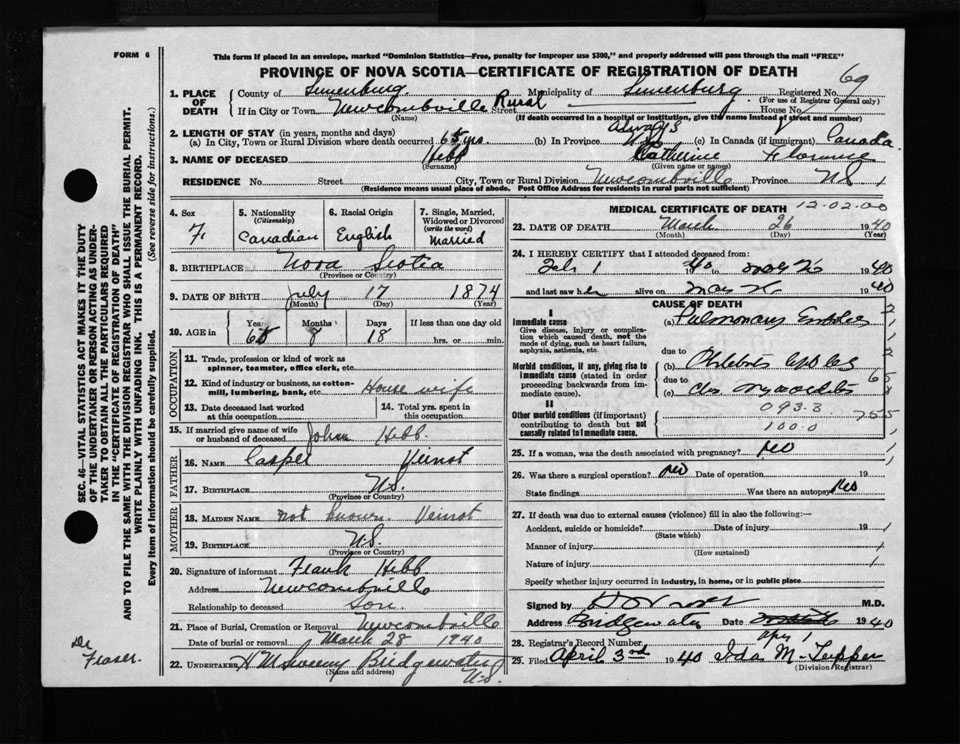 FORM 6
This form if placed in an envelope, marked "Dominion Statistics—Free, penalty for improper use $300," and properly addressed will pass through the mail "FREE"
PROVINCE OF NOVA SCOTIA—CERTIFICATE OF REGISTRATION OF DEATH
69
1. PLACE OF DEATH County of Lunenburg Municipality of Lunenburg Registered No.
(For use of Registrar General only)
If in City or Town Newcombville Rural Street House No.
(Name) (If death occurred in a hospital or institution, give the name instead of street and number)
2. LENGTH OF STAY (in years, months and days) always
(a) In City, Town or Rural Division where death occurred 65 yrs. (b) In Province (c) In Canada (if immigrant) Canada
3. NAME OF DECEASED Hebb Catherine Florence
(Surname) (Given name or names)
RESIDENCE No. Street City, Town or Rural Division Newcombville Province N.S.
(Residence means usual place of abode. Post Office Address for residents in rural parts not sufficient)
4. Sex F
5. Nationality (Citizenship) Canadian
6. Racial Origin English
7. Single, Married, Widowed or Divorced (write the word) Married
8. BIRTHPLACE Nova Scotia
(Province or Country)
9. DATE OF BIRTH July 17 1874
(Month) (Day) (Year)
10. AGE in Years 65 Months 8 Days 18 If less than one day old hrs. or min.
OCCUPATION
11. Trade, profession or kind of work as spinner, teamster, office clerk, etc.
12. Kind of industry or business, as cotton-mill, lumbering, bank, etc. House wife
13. Date deceased last worked at this occupation
14. Total yrs. spent in this occupation
15. If married give name of wife or husband of deceased John Hebb
FATHER
16. NAME Casper Veinot
17. BIRTHPLACE N.S.
(Province or Country)
MOTHER
18. MAIDEN NAME not known Veinot
19. BIRTHPLACE N.S.
(Province or Country)
20. Signature of informant Frank Hebb
Address Newcombville
Relationship to deceased Son.
21. Place of Burial, Cremation or Removal Newcombville
Date of burial or removal March 28 1940
22. UNDERTAKER Bridgewater N.S.
(Name and address)
MEDICAL CERTIFICATE OF DEATH 12-02-00
23. DATE OF DEATH March 26 1940
(Month) (Day) (Year)
24. I HEREBY CERTIFY that I attended deceased from:
Feb 1 40 to 1940
and last saw her alive on 1940
CAUSE OF DEATH
I
Immediate cause
Give disease, injury or complication which caused death, not the mode of dying, such as heart failure, asphyxia, asthenia, etc.
(a) Pulmonary
Morbid conditions, if any, giving rise to immediate cause (stated in order proceeding backwards from immediate cause).
due to
(b)
due to
(c)
II
Other morbid conditions (if important) contributing to death but not causally related to immediate cause.
093.3
100.0
25. If a woman, was the death associated with pregnancy? no
26. Was there a surgical operation? no Date of operation 19
State findings Was there an autopsy no
27. If death was due to external causes (violence) fill in also the following:—
Accident, suicide or homicide? Date of injury 19
(State which)
Manner of injury
(How sustained)
Nature of injury
Specify whether injury occurred in industry, in home, or in public place
Signed by M.D.
Address Bridgewater Date 1940
Apr 1
28. Registrar's Record Number
29. Filed April 3rd 1940 Ida M. Tupper
(Division Registrar)
Dr Fraser.
SEC. 46—VITAL STATISTICS ACT MAKES IT THE DUTY
OF THE UNDERTAKER OR PERSON ACTING AS UNDERTAKER
TO OBTAIN ALL THE PARTICULARS REQUIRED
IN THE "CERTIFICATE OF REGISTRATION OF DEATH"
AND TO FILE THE SAME WITH THE DIVISION REGISTRAR WHO SHALL ISSUE THE BURIAL PERMIT.
WRITE PLAINLY WITH UNFADING INK. THIS IS A PERMANENT RECORD.
Every item of Information should be carefully supplied. (See reverse side for instructions.)